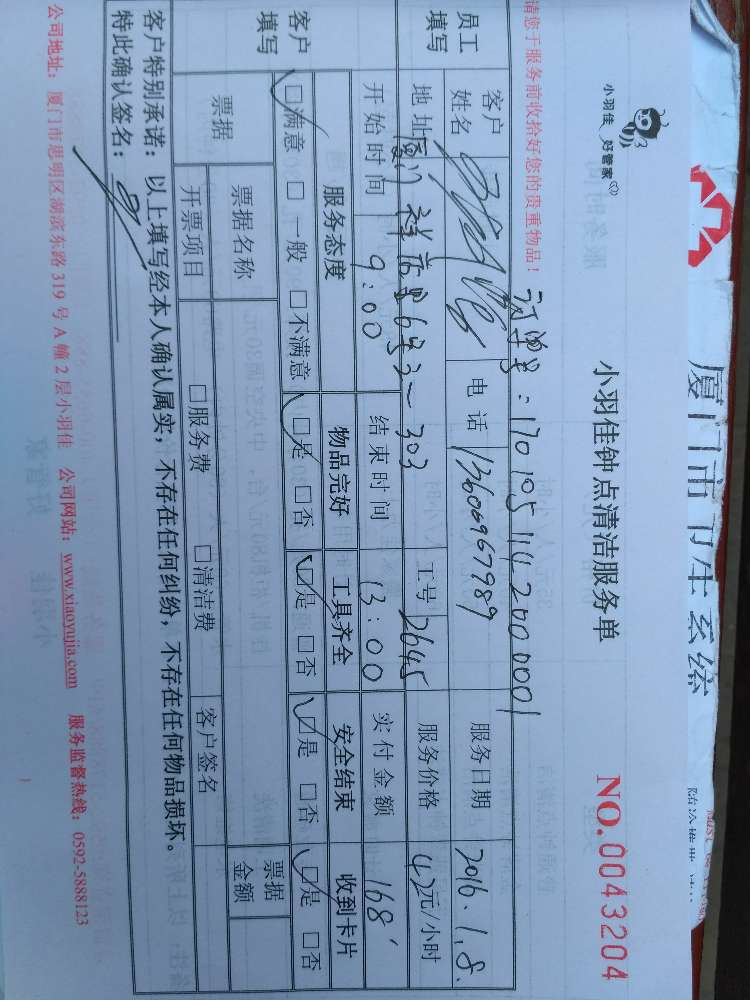 厦门市卫生系统
小羽佳 好管家
小羽佳钟点清洁服务单
NO.0043204
请您于服务前收拾好您的贵重物品！
订单号：170105114200001
员工填写
客户姓名 电话 13606967989 服务日期 2016.1.8.
地址 厦门 633-303 工号 2645 服务价格 42元/小时
开始时间 9:00 结束时间 13:00 实付金额 168
客户填写
服务态度 物品完好 工具齐全 安全结束 收到卡片
☑满意 □一般 □不满意 ☑是 □否 ☑是 □否 ☑是 □否 ☑是 □否
票据 票据名称 票据金额
开票项目 □服务费 □清洁费 客户签名
客户特别承诺：以上填写经本人确认属实，不存在任何纠纷，不存在任何物品损坏。
特此确认签名：
公司地址：厦门市思明区湖滨东路 319 号 A 幢 2 层小羽佳 公司网站：www.xiaoyujia.com 服务监督热线：0592-5888123